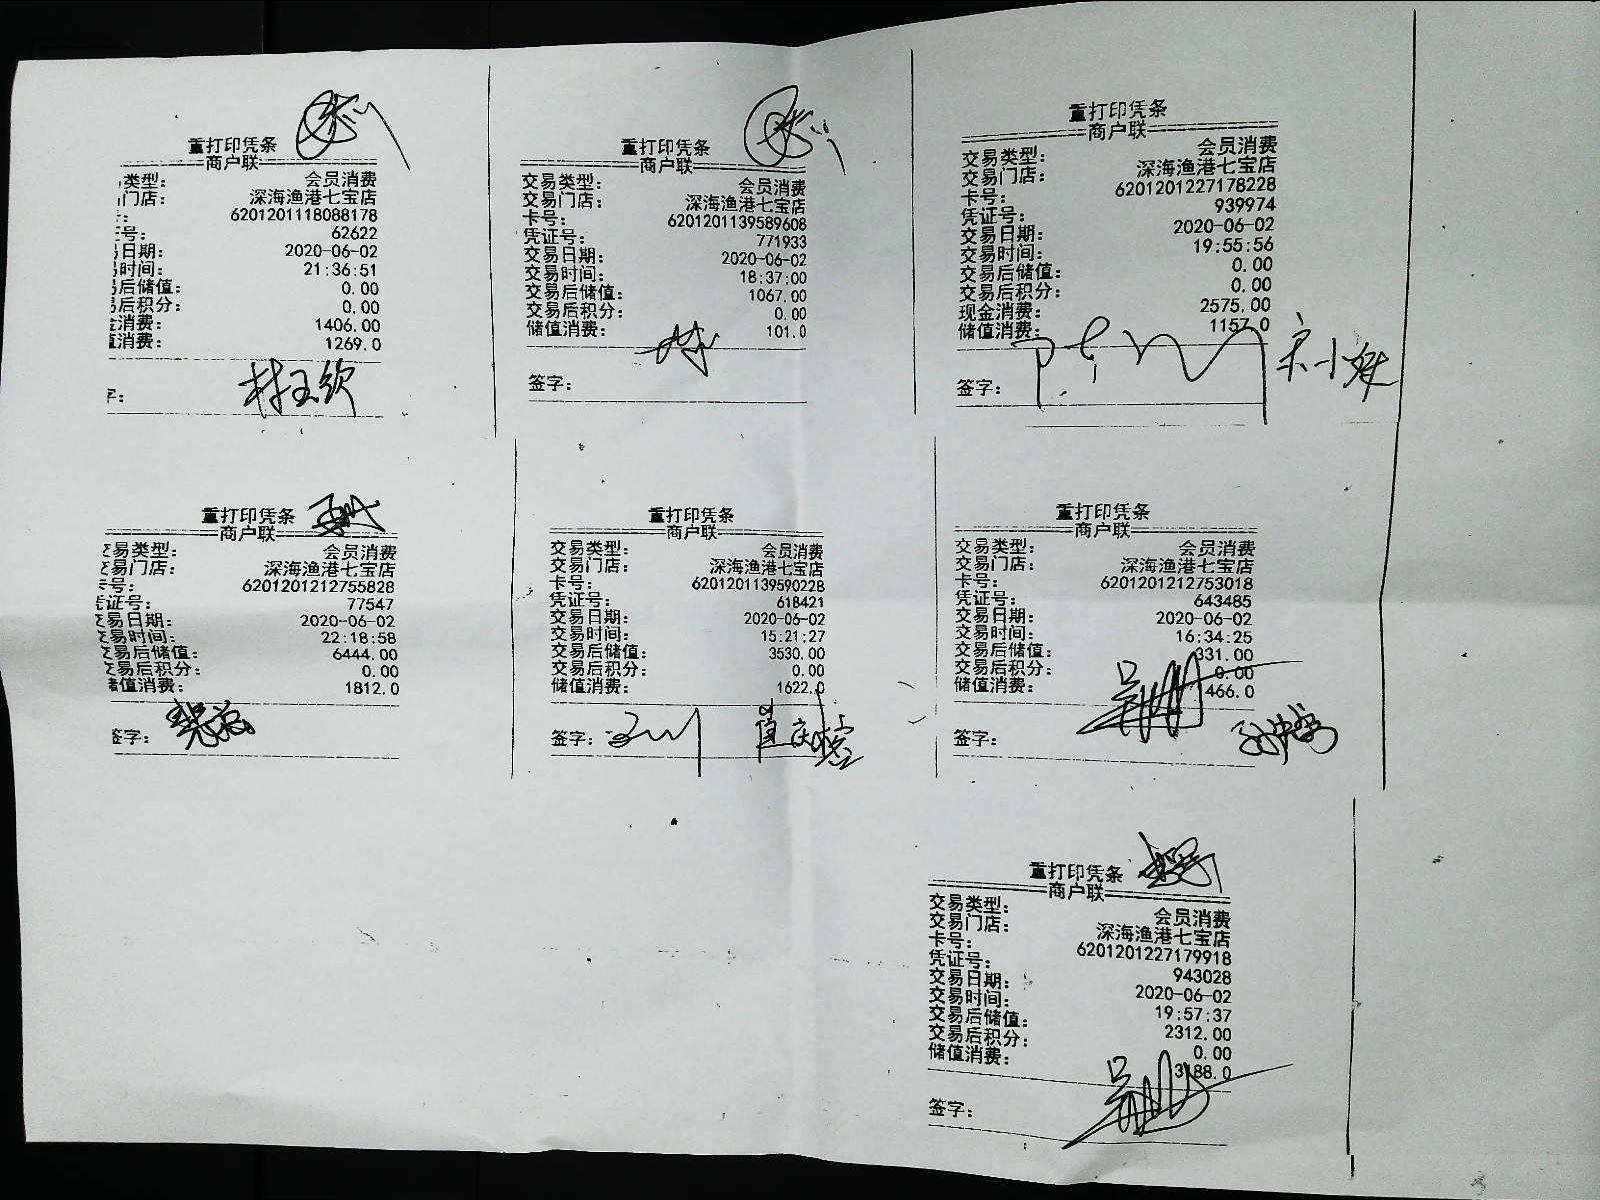 重打印凭条
商户联
类型: 会员消费
门店: 深海渔港七宝店
号: 6201201118088178
证号: 62622
易日期: 2020-06-02
易时间: 21:36:51
易后储值: 0.00
易后积分: 0.00
金消费: 1406.00
值消费: 1269.0
字:
林玉钦
重打印凭条
商户联
交易类型: 会员消费
交易门店: 深海渔港七宝店
卡号: 6201201139589608
凭证号: 771933
交易日期: 2020-06-02
交易时间: 18:37:00
交易后储值: 1067.00
交易后积分: 0.00
储值消费: 101.0
签字:
重打印凭条
商户联
交易类型: 会员消费
交易门店: 深海渔港七宝店
卡号: 6201201227178228
凭证号: 939974
交易日期: 2020-06-02
交易时间: 19:55:56
交易后储值: 0.00
交易后积分: 0.00
现金消费: 2575.00
储值消费: 1157.0
签字:
重打印凭条
商户联
交易类型: 会员消费
交易门店: 深海渔港七宝店
卡号: 6201201212755828
凭证号: 77547
交易日期: 2020-06-02
交易时间: 22:18:58
交易后储值: 6444.00
交易后积分: 0.00
储值消费: 1812.0
签字:
重打印凭条
商户联
交易类型: 会员消费
交易门店: 深海渔港七宝店
卡号: 6201201139590228
凭证号: 618421
交易日期: 2020-06-02
交易时间: 15:21:27
交易后储值: 3530.00
交易后积分: 0.00
储值消费: 1622.0
签字:
重打印凭条
商户联
交易类型: 会员消费
交易门店: 深海渔港七宝店
卡号: 6201201212753018
凭证号: 643485
交易日期: 2020-06-02
交易时间: 16:34:25
交易后储值: 331.00
交易后积分: 0.00
储值消费: 466.0
签字:
重打印凭条
商户联
交易类型: 会员消费
交易门店: 深海渔港七宝店
卡号: 6201201227179918
凭证号: 943028
交易日期: 2020-06-02
交易时间: 19:57:37
交易后储值: 2312.00
交易后积分: 0.00
储值消费: 3188.0
签字: